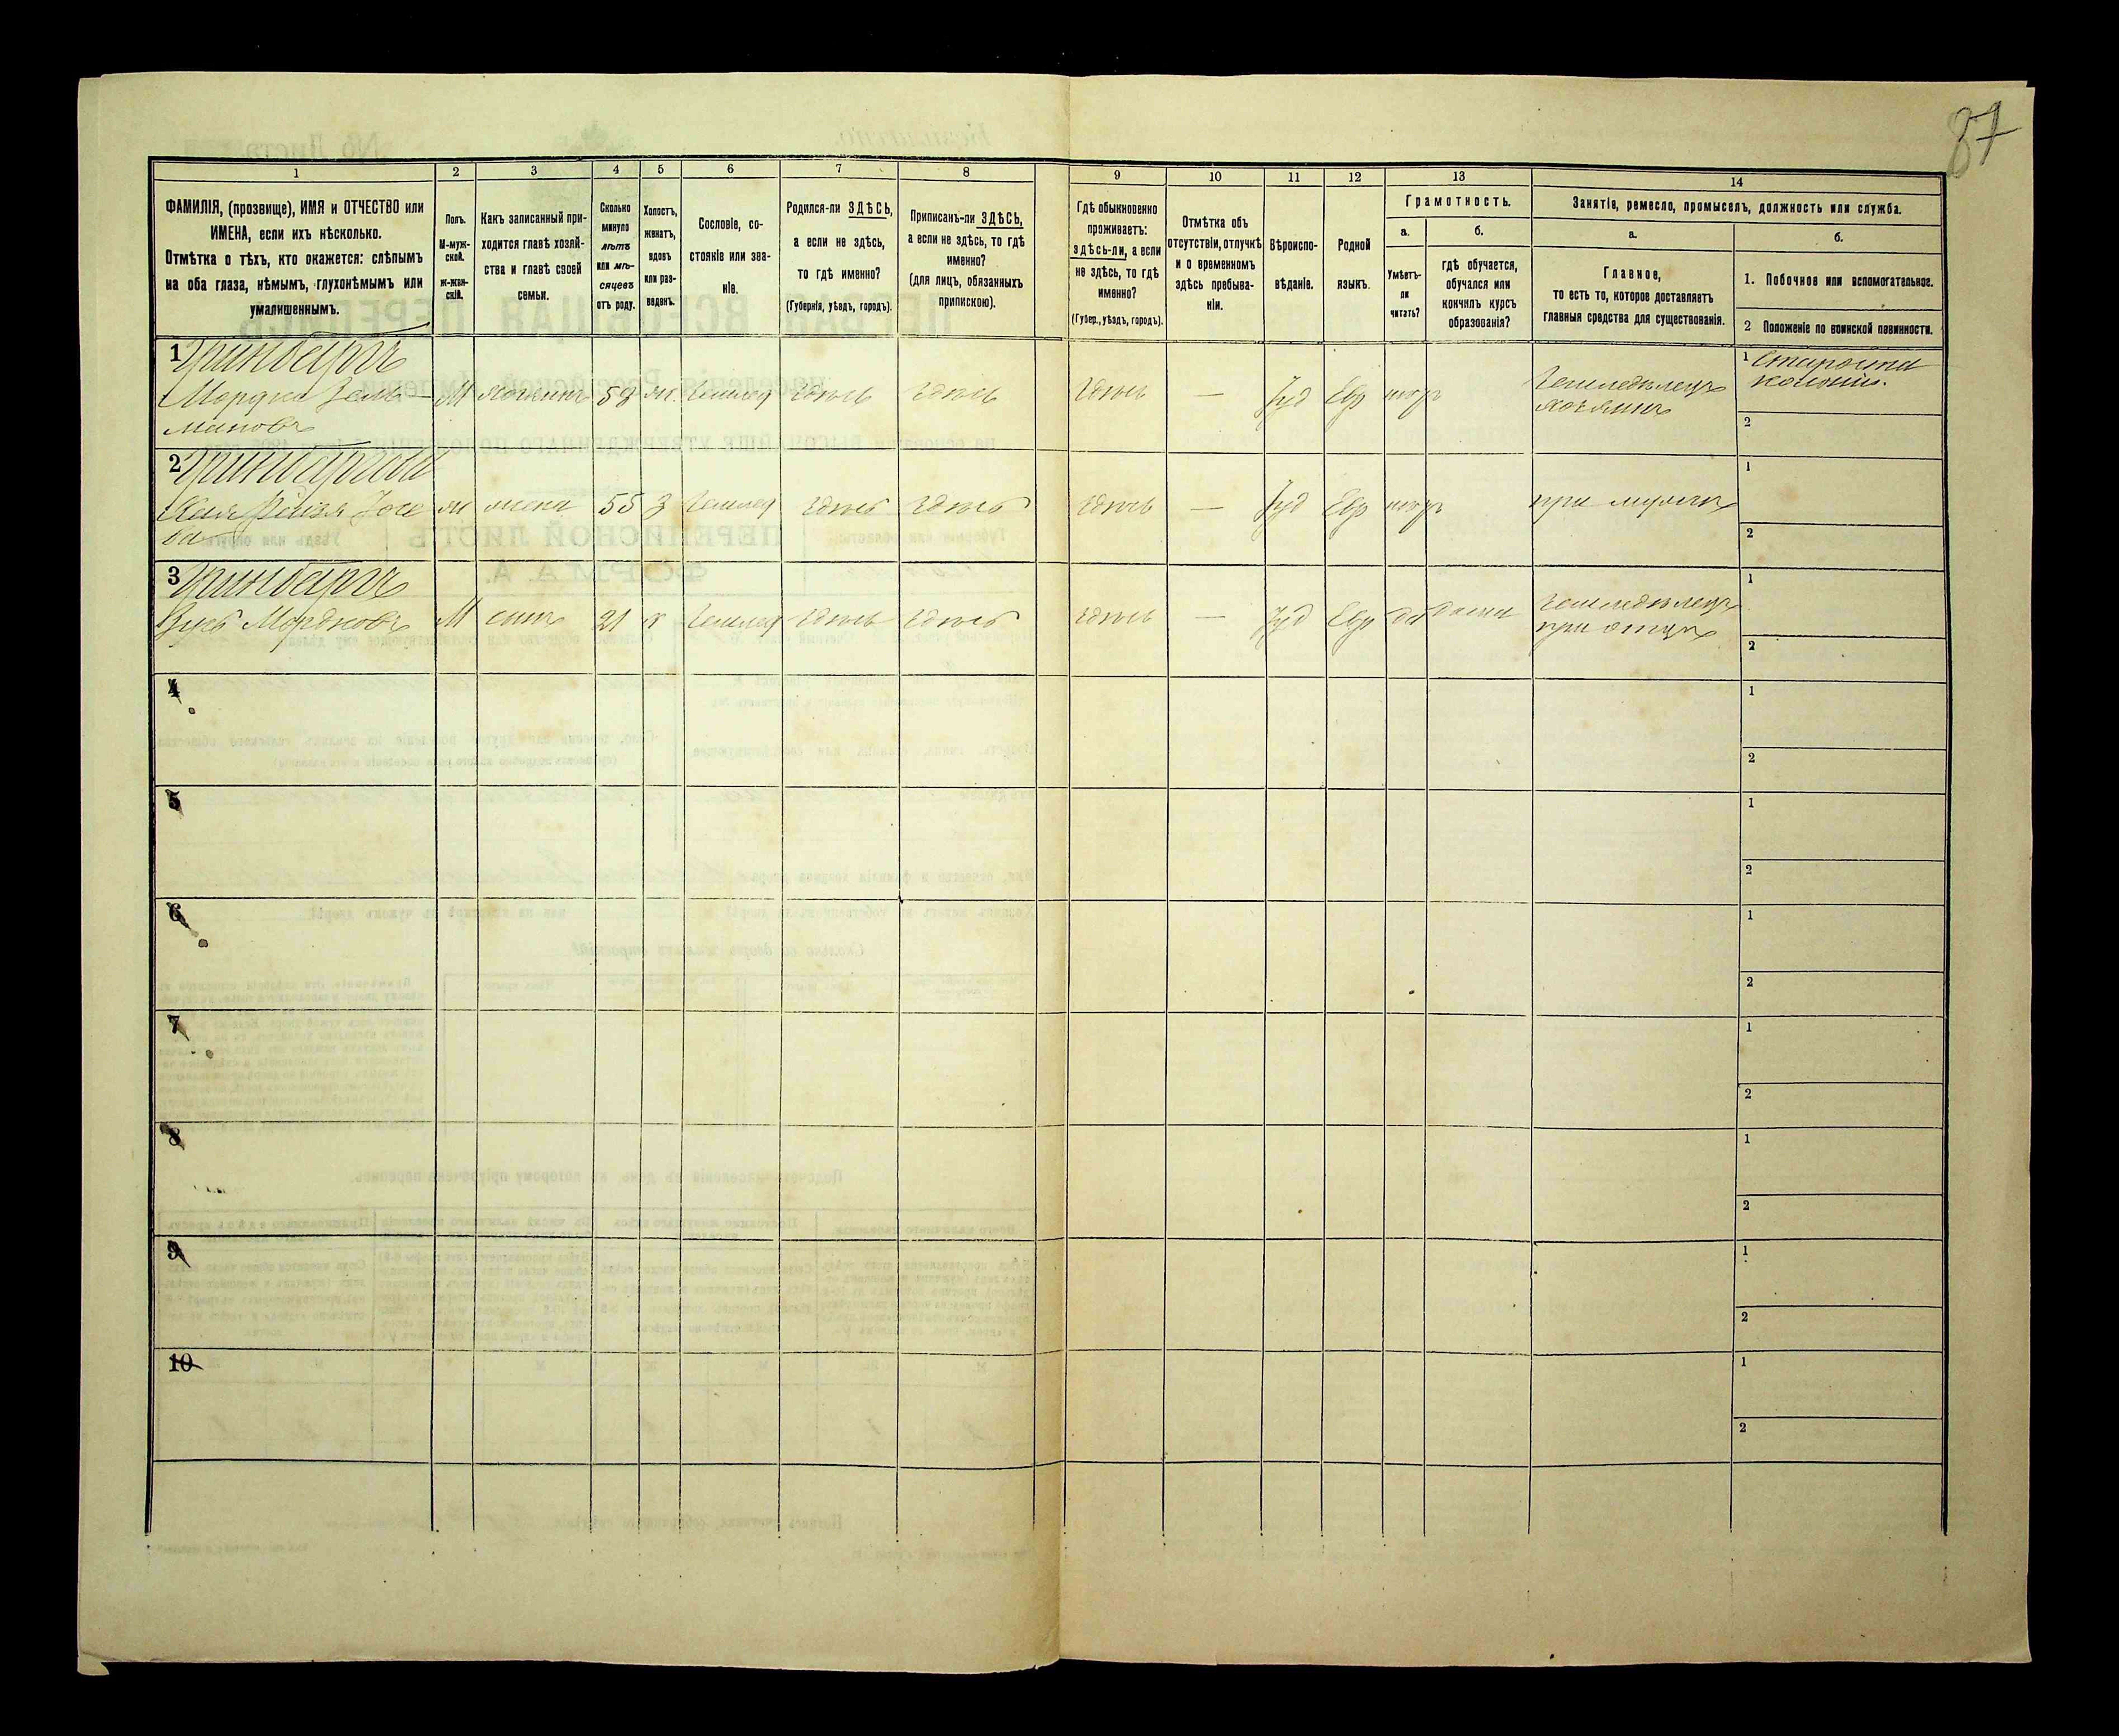 87
1
2
3
4
5
6
7
8
9
10
11
12
13
14
ФАМИЛІЯ, (прозвище), ИМЯ и ОТЧЕСТВО или
ИМЕНА, если ихъ нѣсколько.
Отмѣтка о тѣхъ, кто окажется: слѣпымъ
на оба глаза, нѣмымъ, глухонѣмымъ или
умалишеннымъ.
Полъ.
М-муж-
ской.
ж-жен-
скій.
Какъ записанный при-
ходится главѣ хозяй-
ства и главѣ своей
семьи.
Сколько
минуло
лѣтъ
или мѣ-
сяцевъ
отъ роду.
Холостъ,
женатъ,
вдовъ
или раз-
веденъ.
Сословіе, со-
стояніе или зва-
ніе.
Родился-ли ЗДѢСЬ,
а если не здѣсь,
то гдѣ именно?
(Губернія, уѣздъ, городъ).
Приписанъ-ли ЗДѢСЬ,
а если не здѣсь, то гдѣ
именно?
(для лицъ, обязанныхъ
припискою).
Гдѣ обыкновенно
проживаетъ:
здѣсь-ли, а если
не здѣсь, то гдѣ
именно?
(Губер., уѣздъ, городъ).
Отмѣтка объ
отсутствіи, отлучкѣ
и о временномъ
здѣсь пребыва-
ніи.
Вѣроиспо-
вѣданіе.
Родной
языкъ.
Грамотность.
а.
Умѣетъ-
ли
читать?
б.
гдѣ обучается,
обучался или
кончилъ курсъ
образованія?
Занятіе, ремесло, промыселъ, должность или служба.
а.
Главное,
то есть то, которое доставляетъ
главныя средства для существованія.
б.
1. Побочное или вспомогательное.
2 Положеніе по воинской повинности.
1 Гринбергъ
Мордко Зель-
мановъ
М
хозяинъ
59
ж.
Землед
здѣсь
здѣсь
здѣсь
—
Іуд
Евр
Земледѣлецъ
хозяинъ
1 Староста
колоніи.
2
2 Гринбергова
Рейзя Іосе
ва
ж
жена
55
з
Землед
здѣсь
здѣсь
здѣсь
—
Іуд
Евр
при мужѣ
1
2
3 Гринбергъ
Зусь Мордковъ
М
сынъ
21
х
Землед
здѣсь
здѣсь
здѣсь
—
Іуд
Евр
да
дома
Земледѣлецъ
при отцѣ
1
2
4
1
2
5
1
2
6
1
2
7
1
2
8
1
2
9
1
2
10
1
2